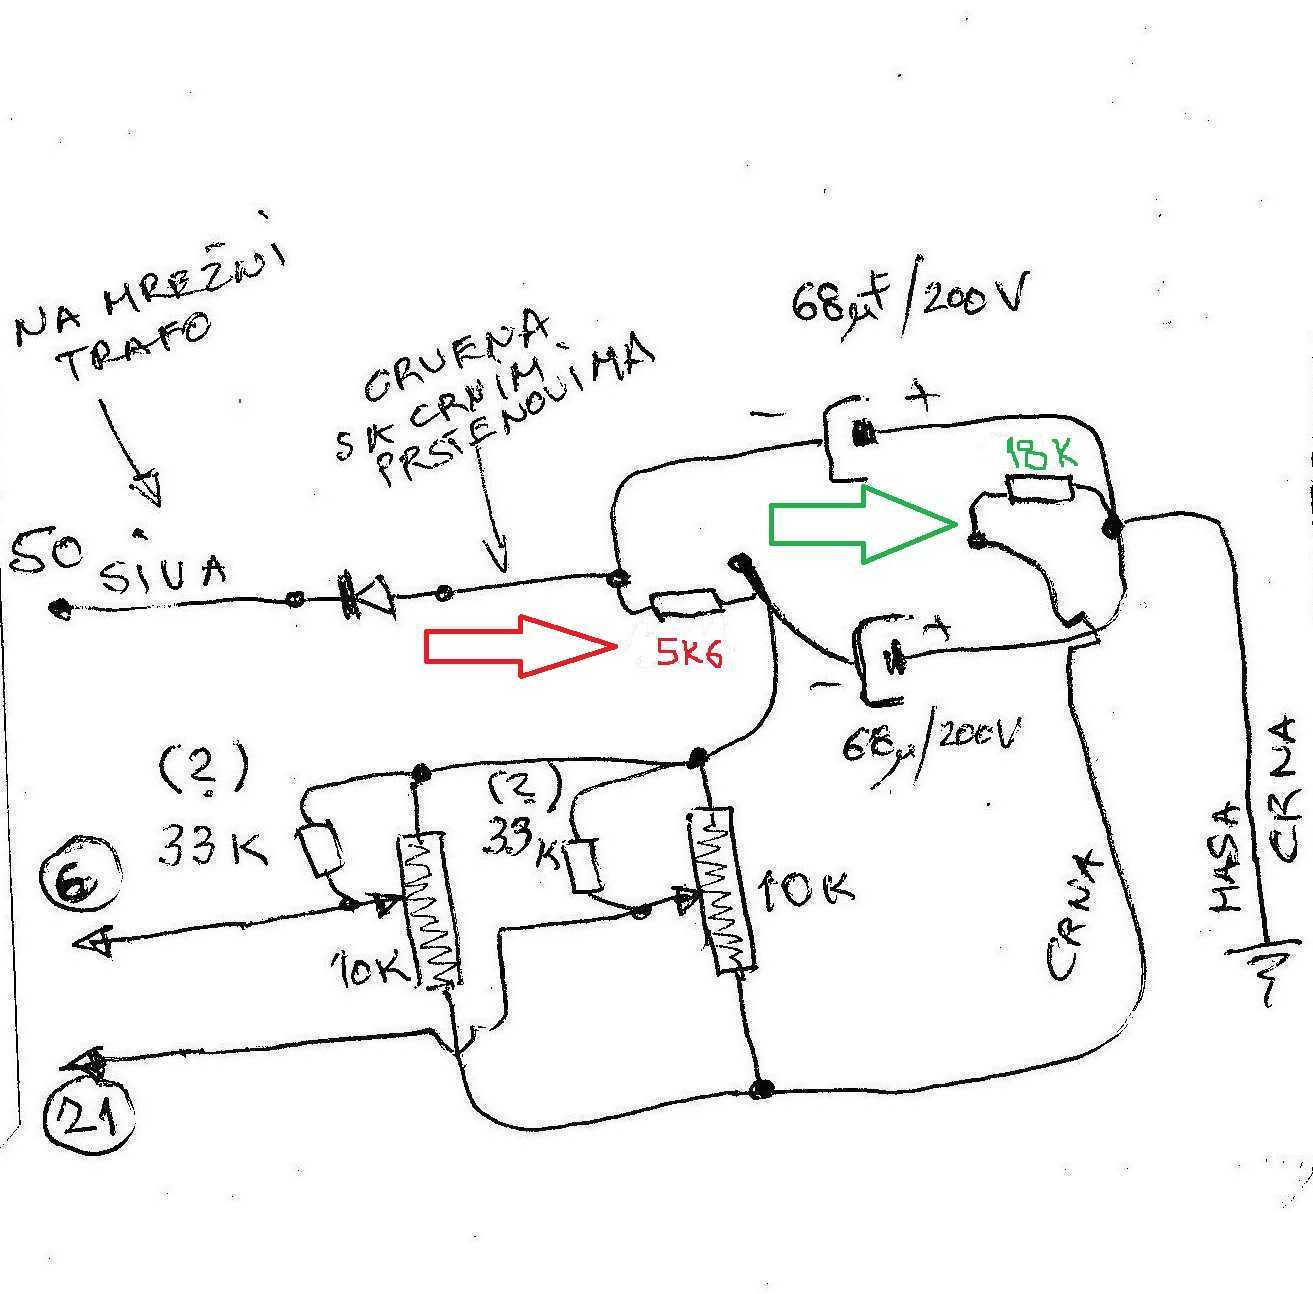 NA MREŽNI
TRAFO
68µF/200V
CRVENA
SK CRNIM
PRSTENOVIMA
- +
18K
50
SIVA
5K6
+
-
68µ/200V
(?)
33K
(?)
33K
6
10K
10K
CRNA
MASA
CRNA
21